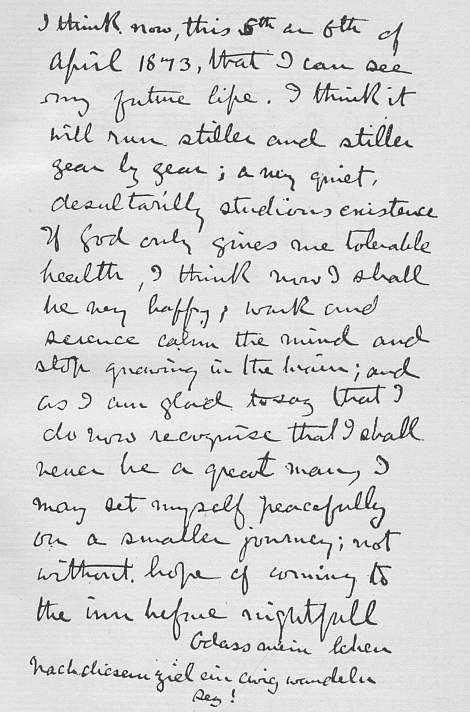 I think now, this 5th or 6th of
April 1873, that I can see
my future life. I think it
will run stiller and stiller
year by year; a very quiet,
desultorily studious existence
If God only gives me tolerable
health, I think now I shall
be very happy; work and
science calm the mind and
stop gnawing in the brain; and
as I am glad to say that I
do now recognise that I shall
never be a great man, I
may set myself peacefully
on a smaller journey; not
without hope of coming to
the inn before nightfall
O dass mein leben
nach diesem ziel ein ewig wandeln
sey!